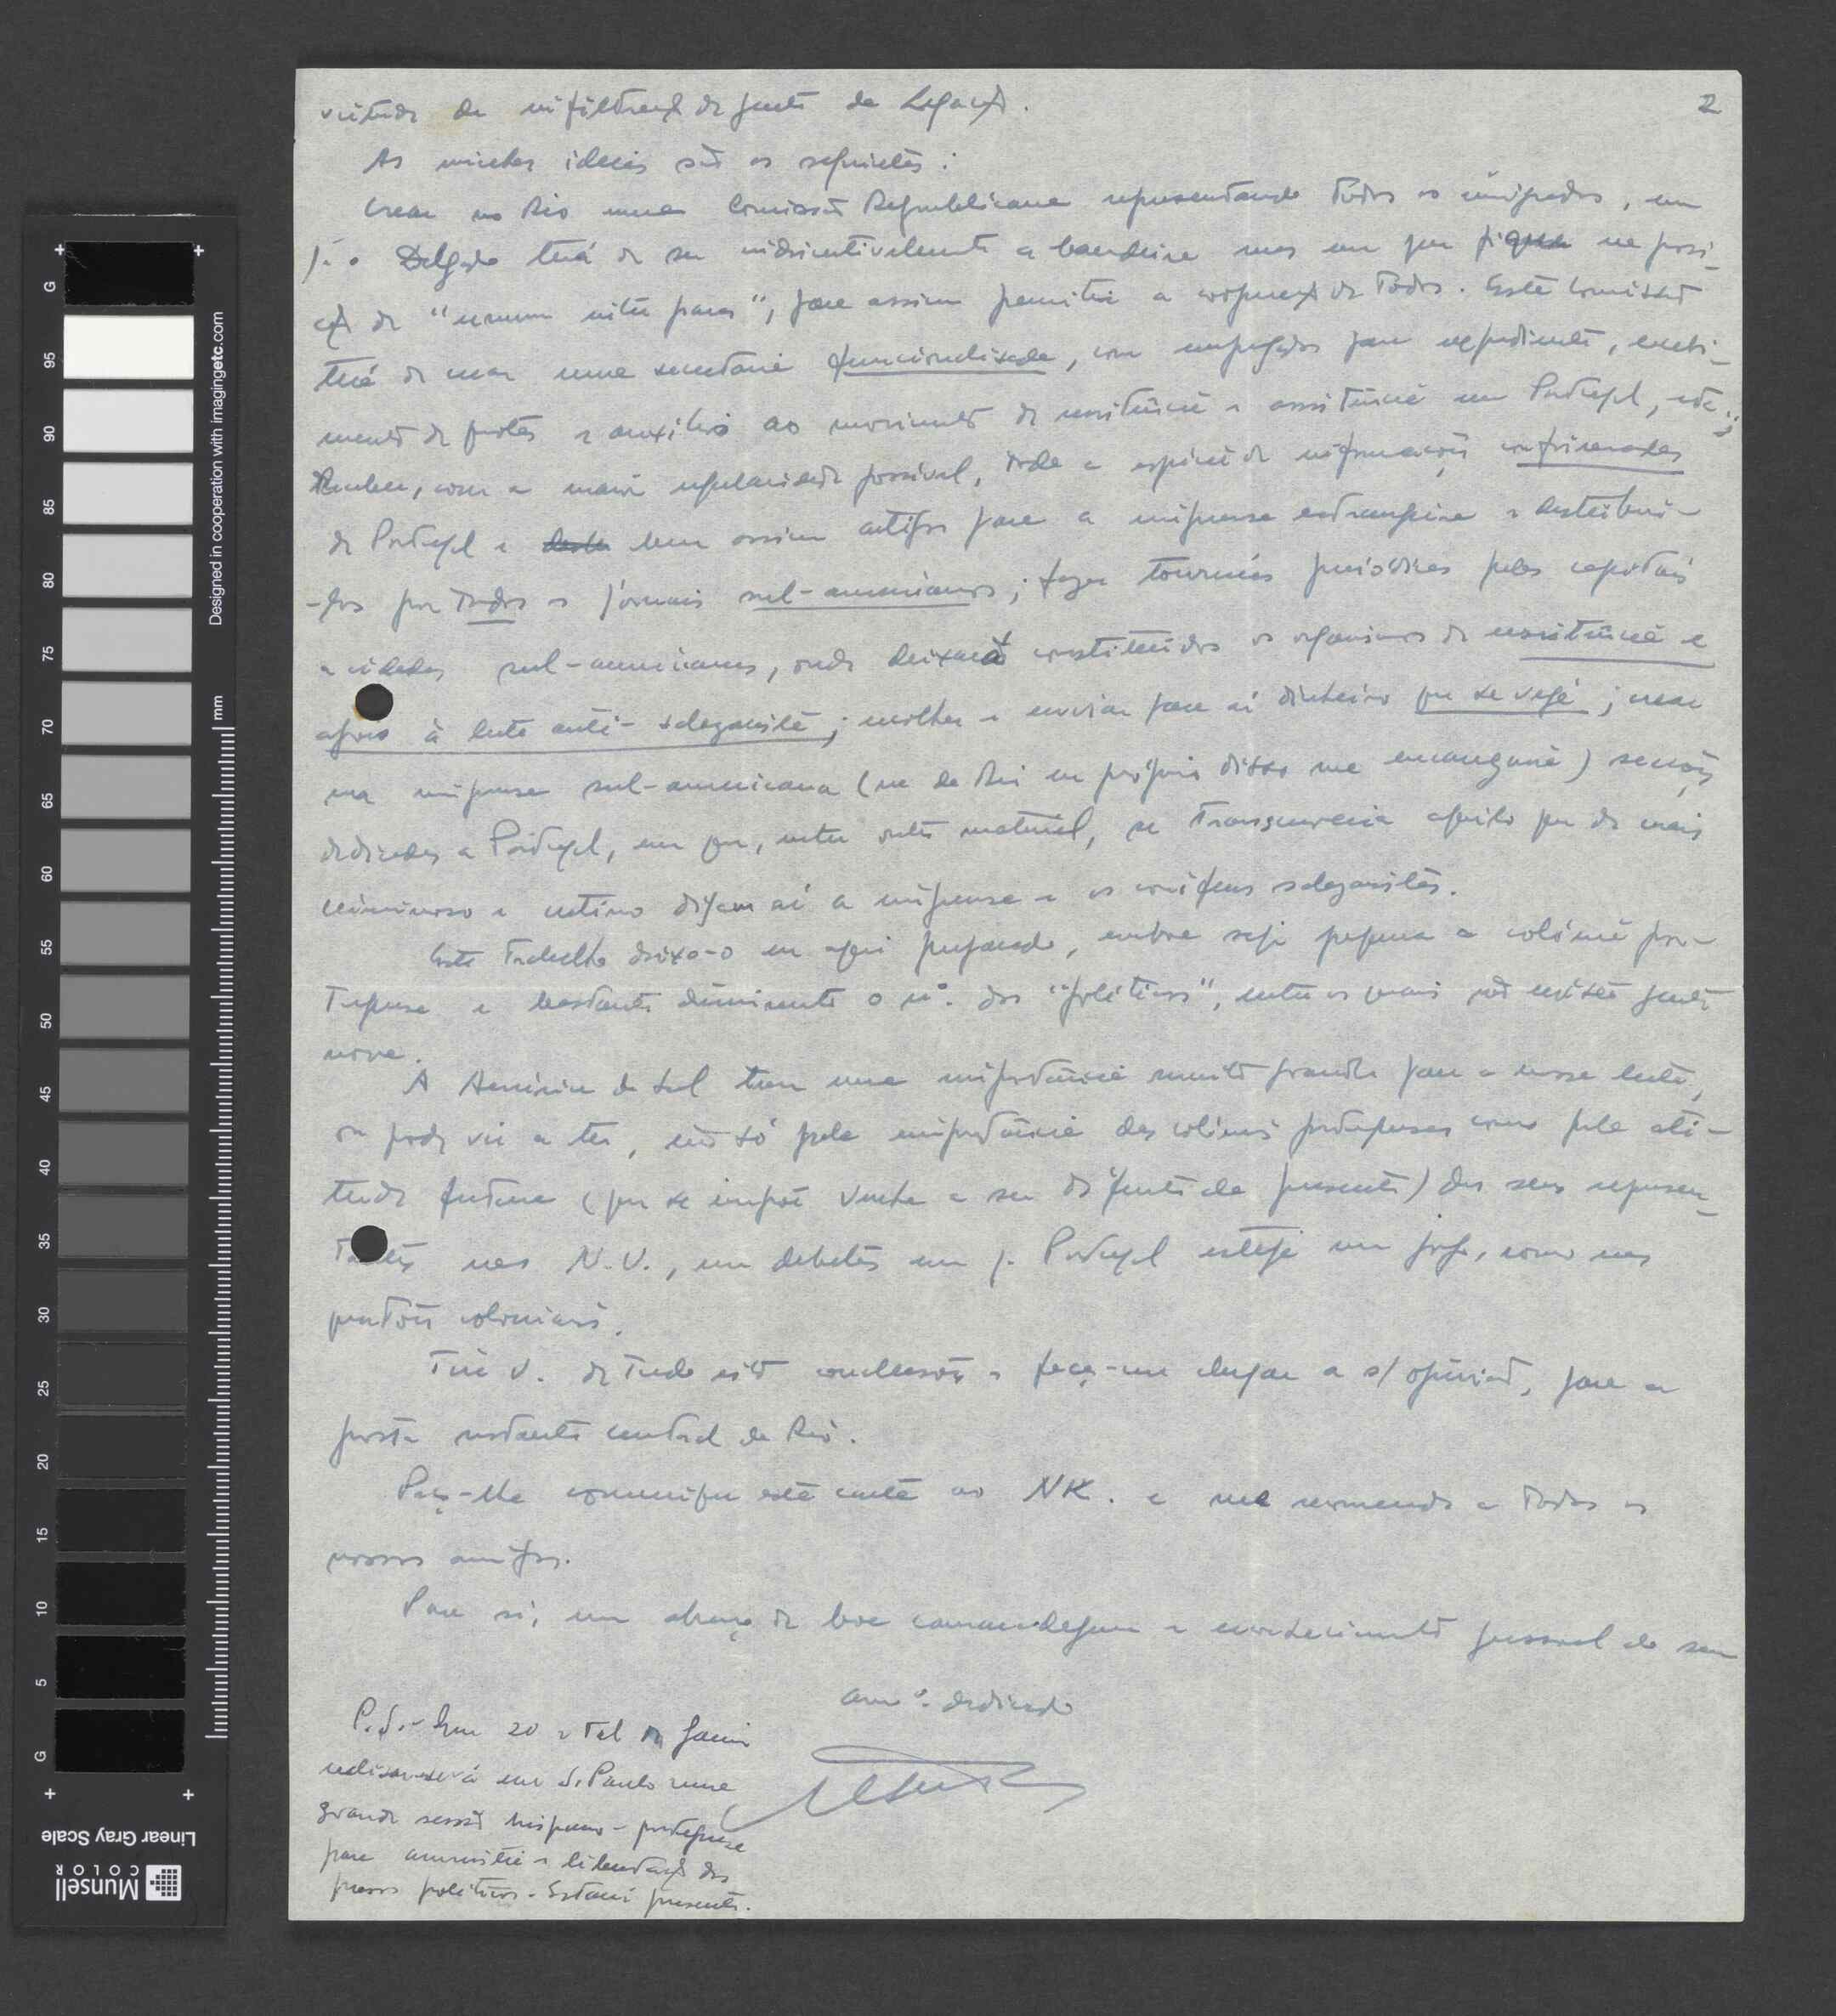 2
virtude da infiltração de gente da Legação.
As minhas ideias são as seguintes:
Crear no Rio uma Comissão Republicana representando todos os emigrados, em
q. o Delgado terá de ser indiscutivelmente a bandeira mas em que fique na posi-
ção de "primum inter pares", para assim permitir a cooperação de todos. Esta Comissão
terá de criar uma secretaria funcionalizada, com empregados para expediente, encami-
nhamento de protestos e auxílio ao movimento de resistência e assistência em Portugal, etc.;
Receber, com a maior regularidade possível, toda a espécie de informações confirmadas
de Portugal e bem assim artigos para a imprensa estrangeira e distribui-
-los por todos os jornais sul-americanos; fazer tournées periódicas pelas capitais
e cidades sul-americanas, onde deixará constituídos os organismos de resistência e
apoio à luta anti-salazarista; recolher e enviar para aí dinheiro que se veja; criar
na imprensa sul-americana (na do Rio eu próprio disso me encarregarei) secções
dedicadas a Portugal, em que, entre outro material, se transcreveria aquilo que de mais
criminoso e cretino digam aí a imprensa e os corifeus salazaristas.
Este trabalho deixo-o eu aqui preparado, embora seja pequena a colónia por-
tuguesa e bastante diminuto o nº. dos "políticos", entre os quais não existe gente
nova.
A América do Sul tem uma importância muito grande para a nossa luta,
ou pode vir a ter, não só pela importância das colónias portuguesas como pela ati-
tude futura (que se impõe venha a ser diferente da presente) dos seus represen-
tantes nas N.U., em debates em q. Portugal esteja em jogo, como nas
questões coloniais.
Tire V. de tudo isto conclusões e faça-me chegar a s/ opinião, para a
posta restante central do Rio.
Peço-lhe comunique esta carta ao NK. e me recomende a todos os
nossos amigos.
Para si, um abraço de boa camaradagem e reconhecimento pessoal do seu
amº. dedicado
P.S. - Em 20 e tal de Janeiro
realizar-se-á em S. Paulo uma
grande sessão hispano-portuguesa
para amnistia e libertação dos
presos políticos. Estarei presente.
Designed in cooperation with imagingetc.com
mm
G
95
90
85
80
75
70
65
60
55
50
45
40
35
30
25
20
15
10
5
G
Linear Gray Scale
Munsell
COLOR